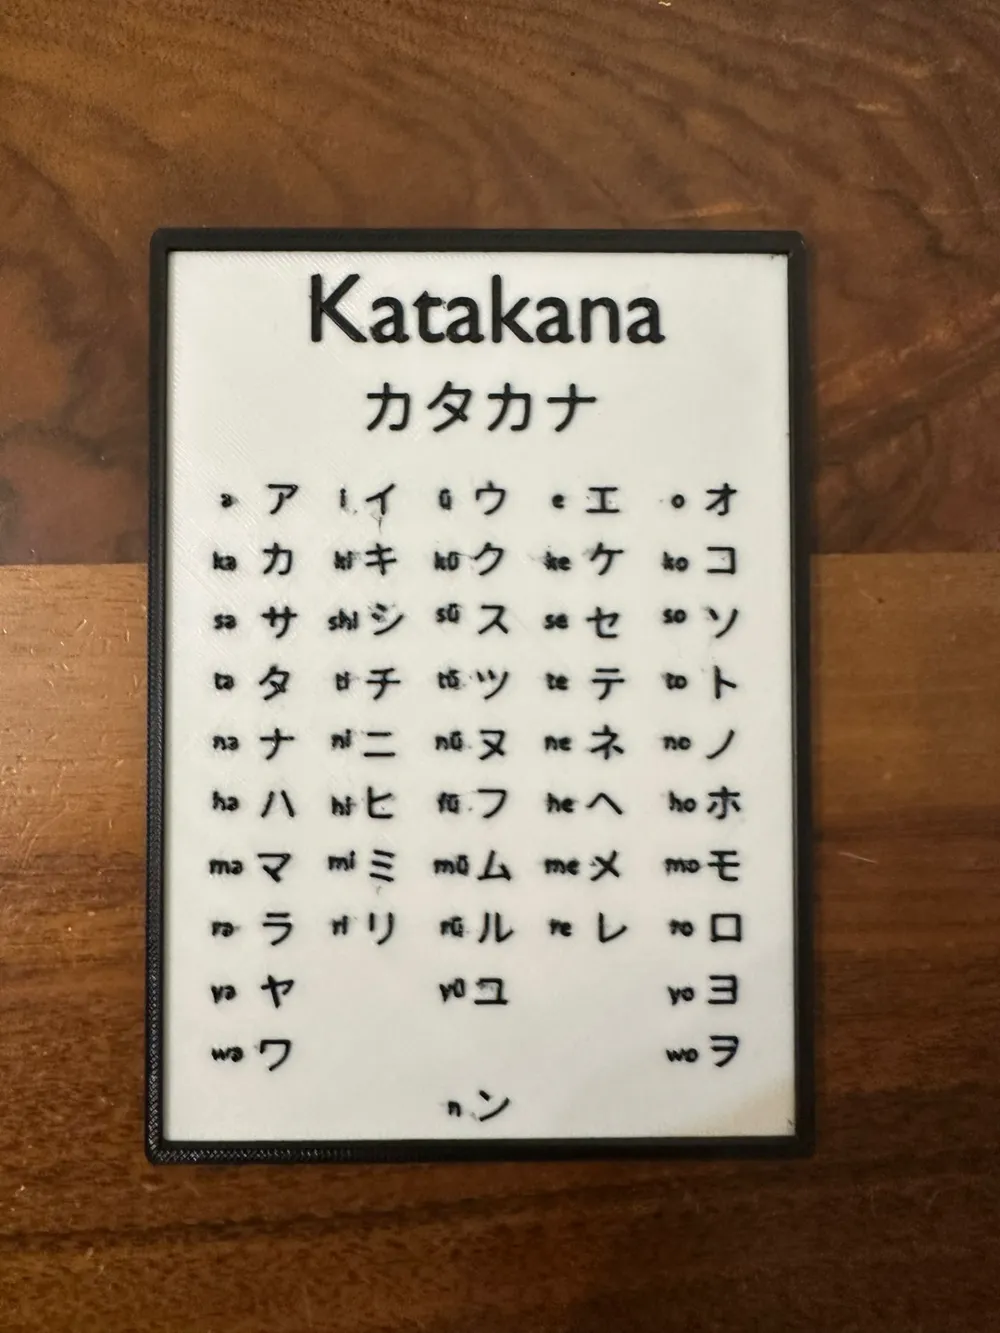 Katakana
カタカナ
a ア i イ ū ウ e エ o オ
ka カ ki キ kū ク ke ケ ko コ
sa サ shi シ sū ス se セ so ソ
ta タ ti チ tū ツ te テ to ト
na ナ ni ニ nū ヌ ne ネ no ノ
ha ハ hi ヒ fū フ he ヘ ho ホ
ma マ mi ミ mū ム me メ mo モ
ra ラ ri リ rū ル re レ ro ロ
ya ヤ yū ユ yo ヨ
wa ワ wo ヲ
n ン